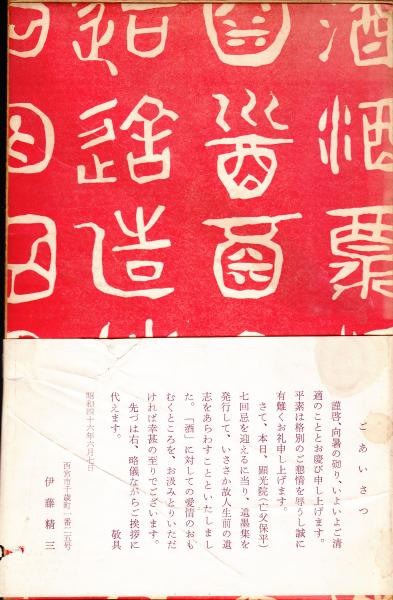 酒
酒
造
ごあいさつ
謹啓、向暑の砌り、いよいよご清
適のこととお慶び申し上げます。
平素は格別のご懇情を辱うし誠に
有難くお礼申し上げます。
さて、本日、顕光院(亡父保平)
七回忌を迎えるに当り、遺墨集を
発行して、いささか故人生前の遺
志をあらわすことといたしまし
た。「酒」に対しての愛情のおも
むくところを、お汲みとりいただ
ければ幸甚の至りでございます。
先づは右、略儀ながらご挨拶に
代えます。
敬具
昭和四十六年六月七日
西宮市千歳町一番二五号
伊藤精三